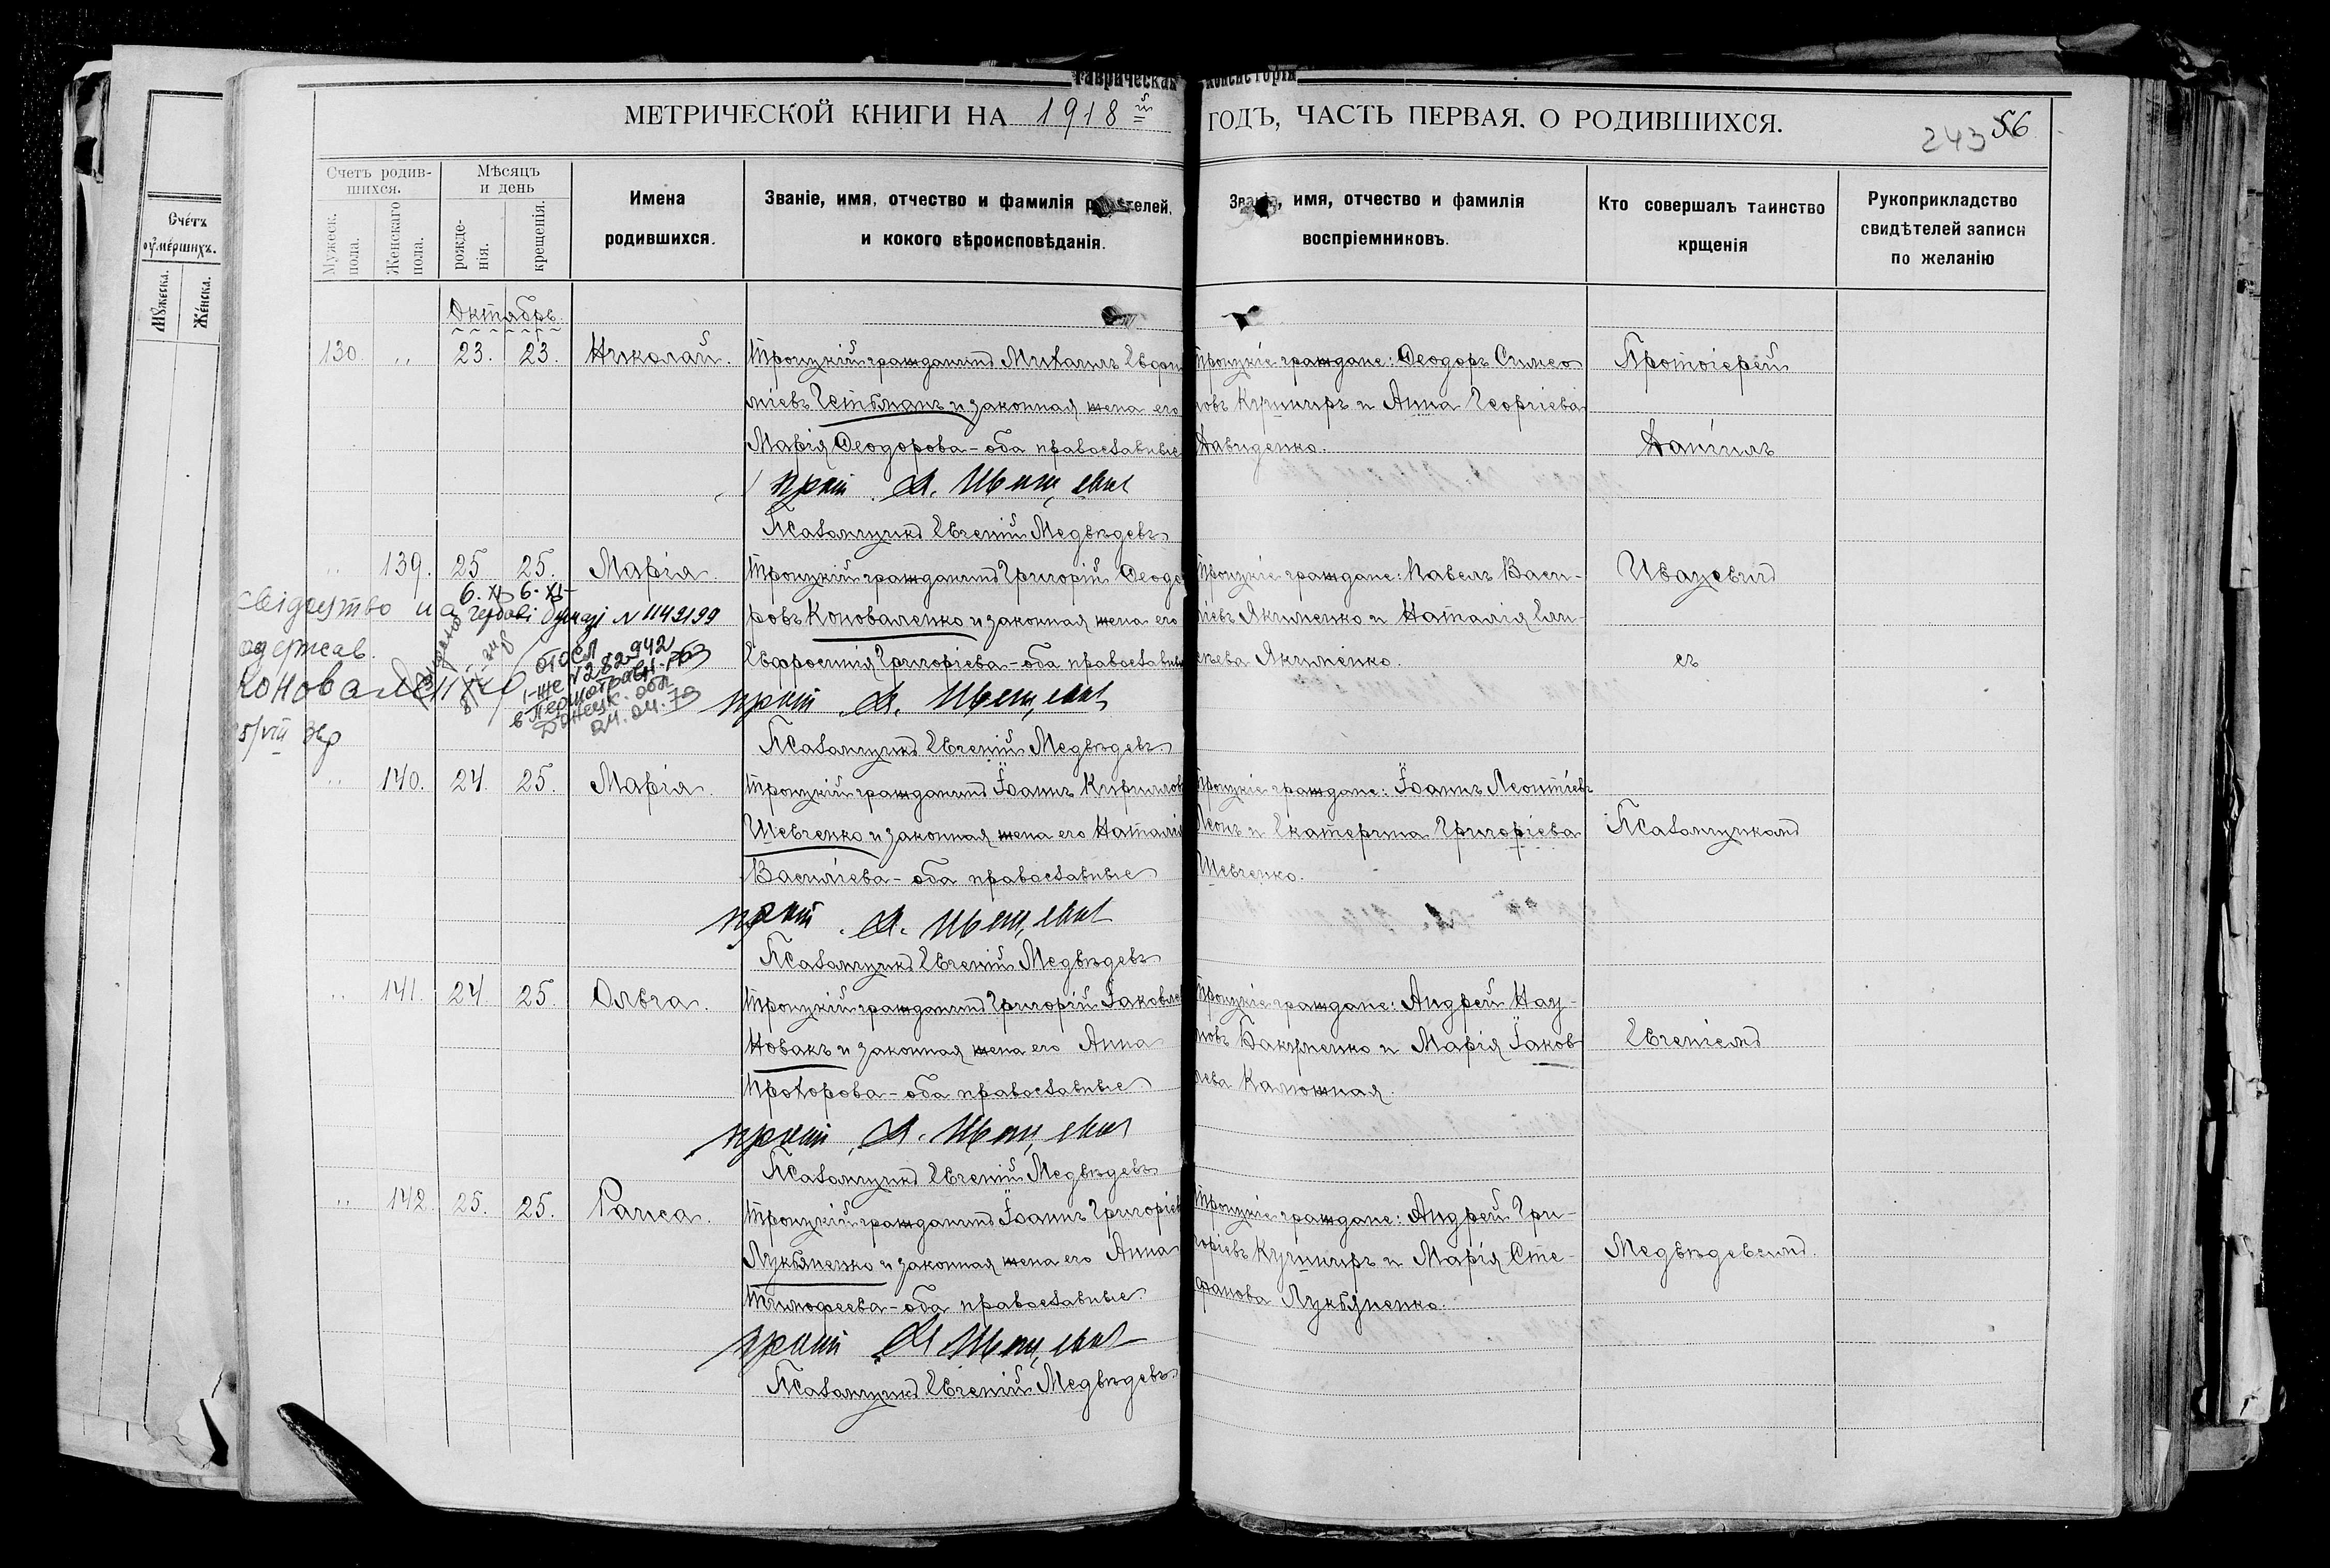 Таврическая Консисторія
МЕТРИЧЕСКОЙ КНИГИ НА 1918 й ГОДЪ, ЧАСТЬ ПЕРВАЯ. О РОДИВШИХСЯ.
243 56
Счетъ оумершихъ.
Мужеска. Женска.
Счетъ родившихся.
Мужеск. пола.
Женскаго пола.
Мѣсяцъ и день
рожденія.
крещенія.
Имена родившихся.
Званіе, имя, отчество и фамилія родителей,
и кокого вѣроисповѣданія.
Званіе, имя, отчество и фамилія
воспріемниковъ.
Кто совершалъ таинство
крщенія
Рукоприкладство
свидѣтелей записи
по желанію
Октябрь
130. „ 23. 23. Николай.
Троицкій гражданинъ Михаилъ Евфи
міевъ Гетьманъ и законная жена его
Марія Ѳеодорова - оба православные
прот. Д.
Псаломщикъ Евгеній Медвѣдевъ
Троицкіе граждане: Ѳеодоръ Симео
новъ Кушниръ и Анна Георгіева
Давиденко.
Протоіерей
Даніилъ
„ 139. 25 25. Марія.
6. XI 6. XI
Троицкій гражданинъ Григорій Ѳеодо
ровъ Коноваленко и законная жена его
Евфросинія Григоріева - оба православные
прот. Д.
Псаломщикъ Евгеній Медвѣдевъ
Троицкіе граждане: Павелъ Васи-
ліевъ Якименко и Наталія Ели-
сѣева Якименко.
съ
свідоцтво на гербові бумазі N 1149199
одержав.
Коноваленко
5/VIII 3
1-ЖС N 282942
24.04.73
„ 140. 24. 25. Марія.
Троицкій гражданинъ Іоаннъ Кириллов
Шевченко и законная жена его Наталія
Василіева - оба православные
прот. Д.
Псаломщикъ Евгеній Медвѣдевъ
Троицкіе граждане: Іоаннъ Леонтіевъ
Леонъ и Екатерина Григоріева
Шевченко.
Псаломщикомъ
„ 141. 24 25. Ольга.
Троицкій гражданинъ Григорій Іаковлев
Новакъ и законная жена его Анна
Прохорова - оба православные
прот. Д.
Псаломщикъ Евгеній Медвѣдевъ
Троицкіе граждане: Андрей Нау-
мовъ Бакуменко и Марія Іаков
лева Калюжная.
Евгеніемъ
„ 142. 25. 25. Раиса.
Троицкій гражданинъ Іоаннъ Григоріев
Лукьяненко и законная жена его Анна
Тимофеева - оба православные
прот. Д.
Псаломщикъ Евгеній Медвѣдевъ
Троицкіе граждане: Андрей Гри-
горіевъ Кушниръ и Марія Сте-
фанова Лукьяненко.
Медвѣдевымъ.